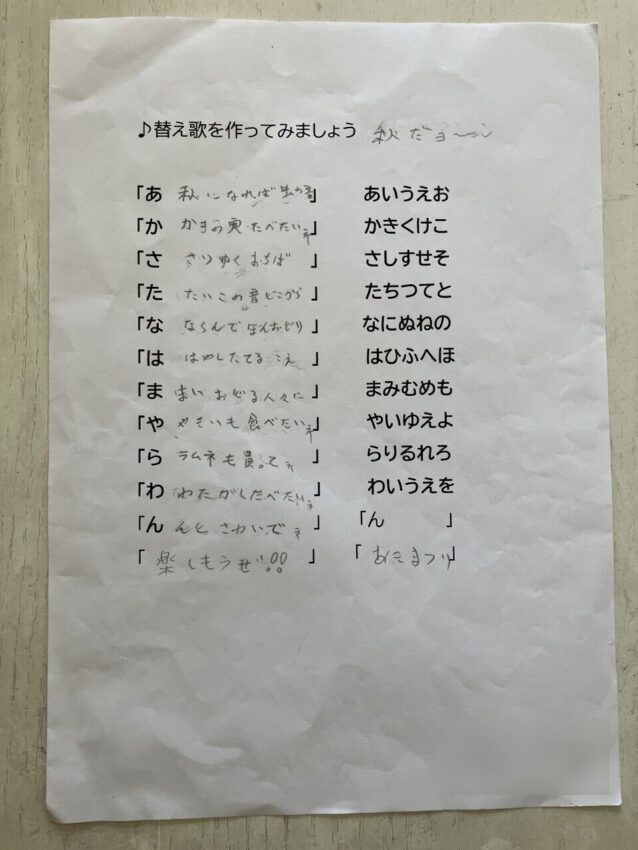 ♪替え歌を作ってみましょう 秋だョ～ン
「あ 秋になれば虫の音」 あいうえお
「か かきの実たべたいぇ」 かきくけこ
「さ さりゆくおちば 」 さしすせそ
「た たいこの音どこから」 たちつてと
「な ならんでぼんおどり」 なにぬねの
「は はやしたてるこえ 」 はひふへほ
「ま まいおどる人々に 」 まみむめも
「や やきいも食べたいぇ」 やいゆえよ
「ら ラムネも買ってぇ 」 らりるれろ
「わ わたがしたべたいぇ」 わいうえを
「ん んとさわいでぇ 」 「ん 」
「 楽しもうぜ!! 」 「 あきまつり」